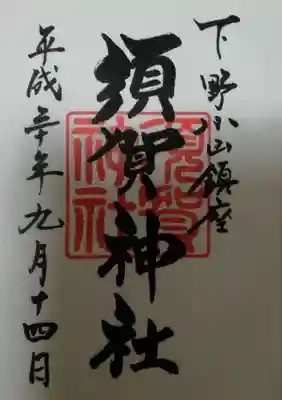 下野小山鎮座
須賀神社
須賀神社
平成三十年九月十四日